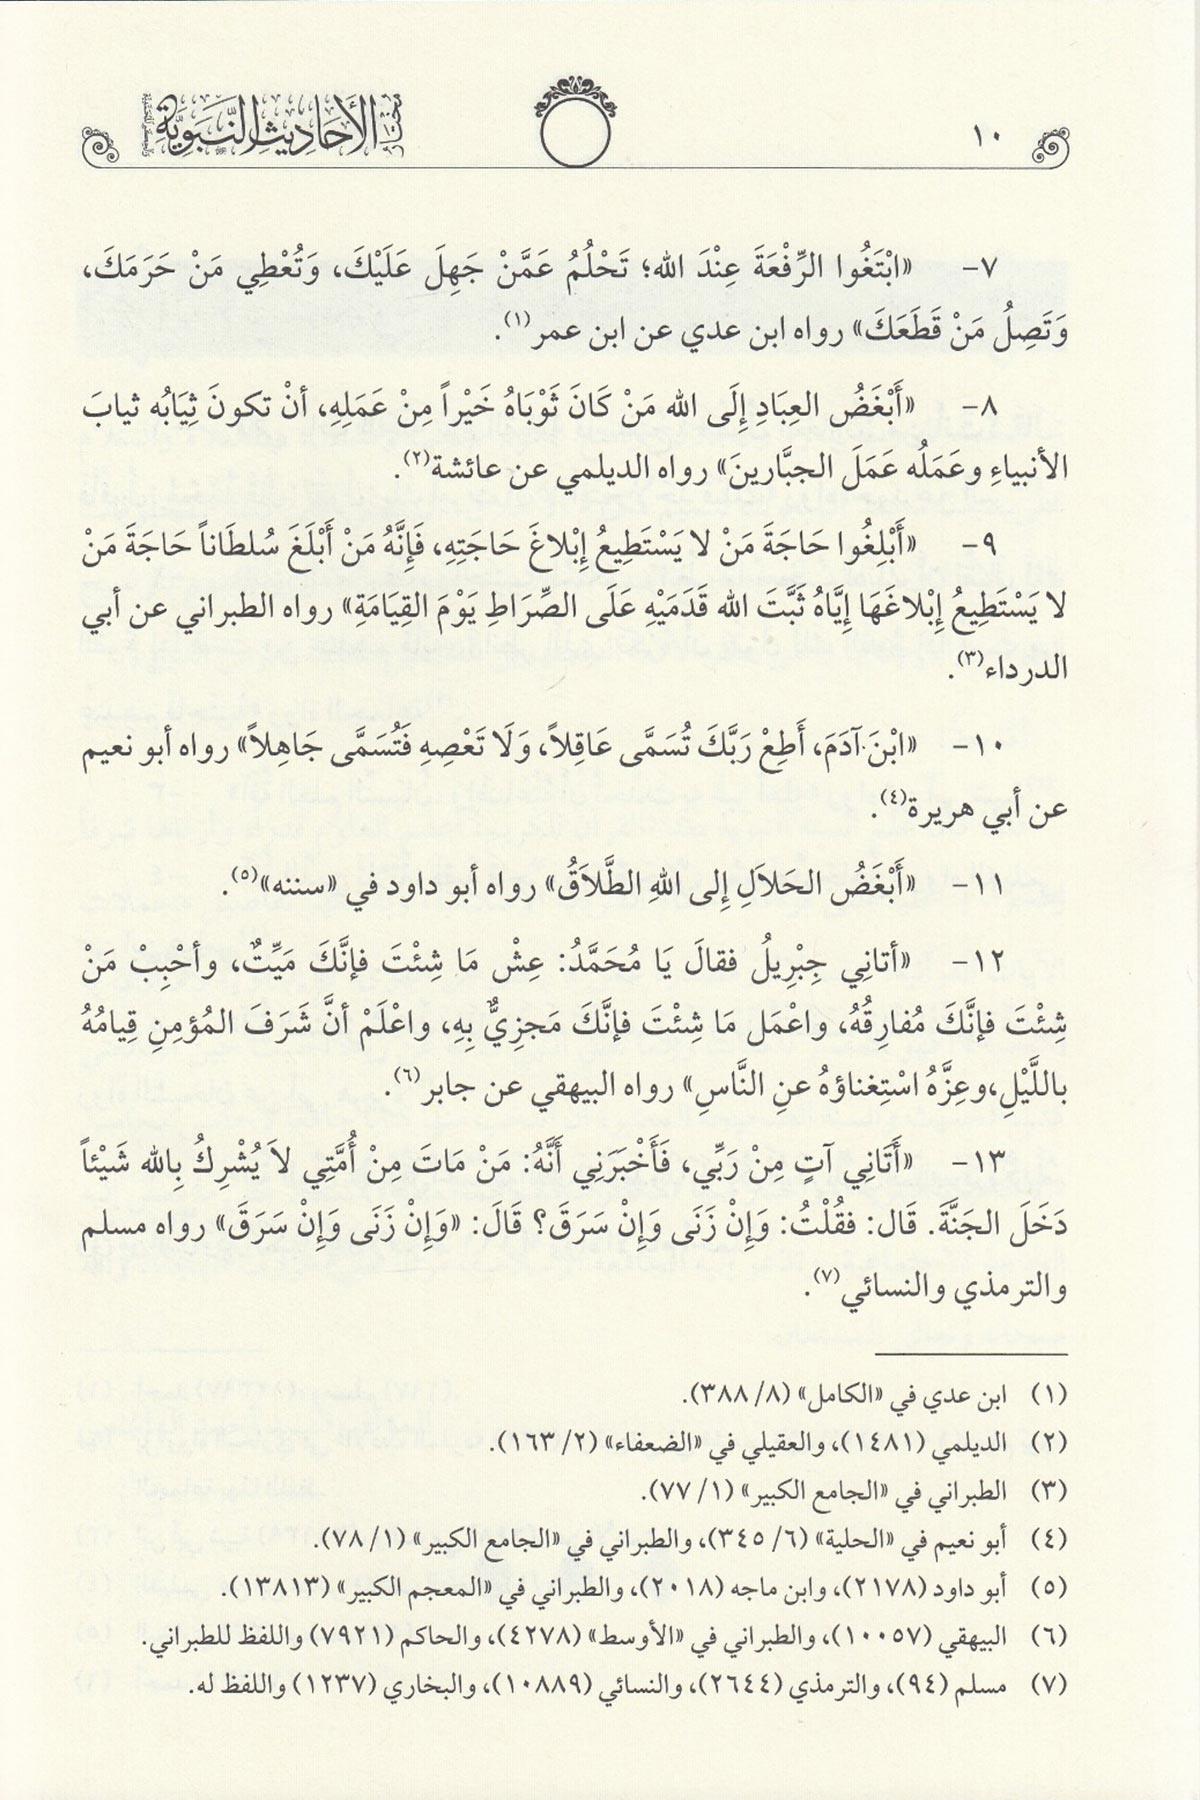 ١٠
مختار الأحاديث النبوية
٧- «ابْتَغُوا الرِّفْعَةَ عِنْدَ الله؛ تَحْلُمُ عَمَّنْ جَهِلَ عَلَيْكَ، وَتُعْطِي مَنْ حَرَمَكَ،
وَتَصِلُ مَنْ قَطَعَكَ» رواه ابن عدي عن ابن عمر(١).
٨- «أَبْغَضُ العِبَادِ إِلَى الله مَنْ كَانَ ثَوْبَاهُ خَيْراً مِنْ عَمَلِهِ، أنْ تكونَ ثِيَابُه ثيابَ
الأنبياءِ وعَمَلُه عَمَلَ الجبَّارينَ» رواه الديلمي عن عائشة(٢).
٩- «أَبْلِغُوا حَاجَةَ مَنْ لا يَسْتَطِيعُ إِبْلاغَ حَاجَتِهِ، فَإِنَّهُ مَنْ أَبْلَغَ سُلطَاناً حَاجَةَ مَنْ
لا يَسْتَطِيعُ إِبْلاغَهَا إِيَّاهُ ثَبَّتَ الله قَدَمَيْهِ عَلَى الصِّرَاطِ يَوْمَ القِيَامَةِ» رواه الطبراني عن أبي
الدرداء(٣).
١٠- «ابْنَ آدَمَ، أَطِعْ رَبَّكَ تُسَمَّى عَاقِلاً، وَلَا تَعْصِهِ فَتُسَمَّى جَاهِلاً» رواه أبو نعيم
عن أبي هريرة(٤).
١١- «أَبْغَضُ الحَلاَلِ إِلى اللهِ الطَّلاَقُ» رواه أبو داود في «سننه»(٥).
١٢- «أتانِي جِبْرِيلُ فقالَ يَا مُحَمَّدُ: عِشْ مَا شِئْتَ فإنَّكَ مَيِّتٌ، وأحْبِبْ مَنْ
شِئْتَ فإنَّكَ مُفارِقُهُ، واعْمَل مَا شِئْتَ فإنَّكَ مَجزِيٌّ بِهِ، واعْلَمْ أنَّ شَرَفَ المُؤمِنِ قِيامُهُ
باللَّيْلِ،وعِزَّهُ اسْتِغناؤهُ عنِ النَّاسِ» رواه البيهقي عن جابر(٦).
١٣- «أَتَانِي آتٍ مِنْ رَبِّي، فَأَخْبَرَنِي أَنَّهُ: مَنْ مَاتَ مِنْ أُمَّتِي لاَ يُشْرِكُ بِالله شَيْئاً
دَخَلَ الجَنَّةَ. قَال: فقُلْتُ: وَإِنْ زَنَى وَإِنْ سَرَقَ؟ قَالَ: «وَإِنْ زَنَى وَإِنْ سَرَقَ» رواه مسلم
والترمذي والنسائي(٧).
(١) ابن عدي في «الكامل» (٨/ ٣٨٨).
(٢) الديلمي (١٤٨١)، والعقيلي في «الضعفاء» (٢/ ١٦٣).
(٣) الطبراني في «الجامع الكبير» (١/ ٧٧).
(٤) أبو نعيم في «الحلية» (٦/ ٣٤٥)، والطبراني في «الجامع الكبير» (١/ ٧٨).
(٥) أبو داود (٢١٧٨)، وابن ماجه (٢٠١٨)، والطبراني في «المعجم الكبير» (١٣٨١٣).
(٦) البيهقي (١٠٠٥٧)، والطبراني في «الأوسط» (٤٢٧٨)، والحاكم (٧٩٢١) واللفظ للطبراني.
(٧) مسلم (٩٤)، والترمذي (٢٦٤٤)، والنسائي (١٠٨٨٩)، والبخاري (١٢٣٧) واللفظ له.